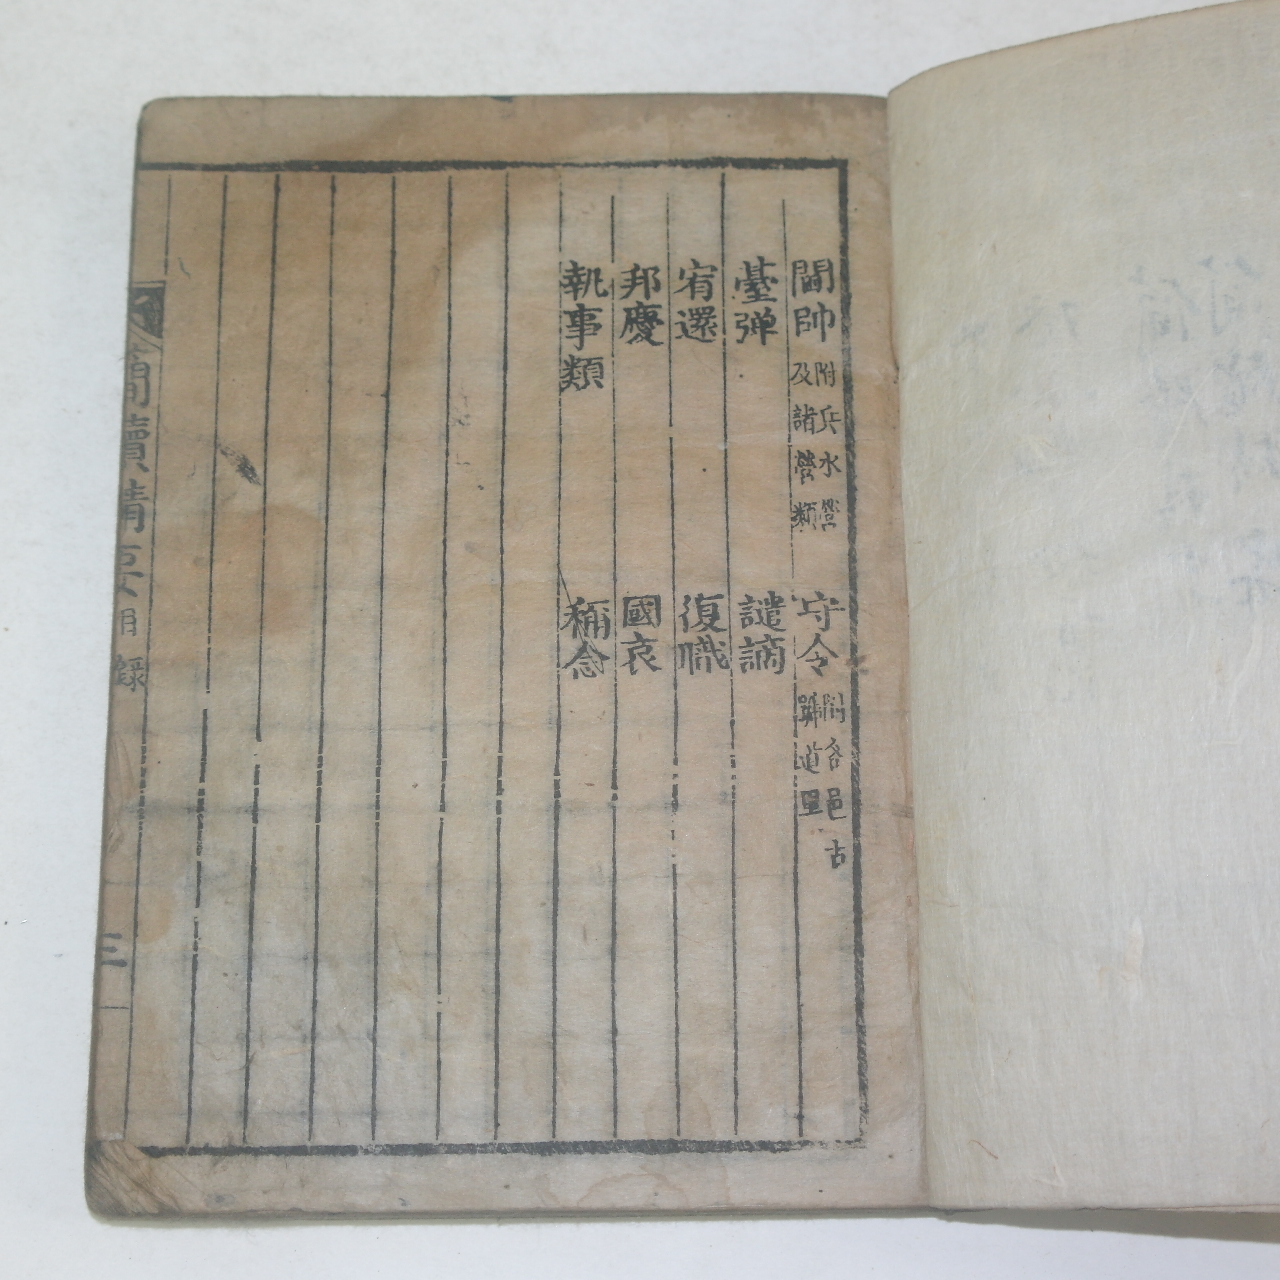 閫帥 附兵水營及諸營類 守令 附各邑古號道里
臺弾 譴謫
宥還 復職
邦慶 國哀
執事類 稱念
簡牘精要 目錄 三